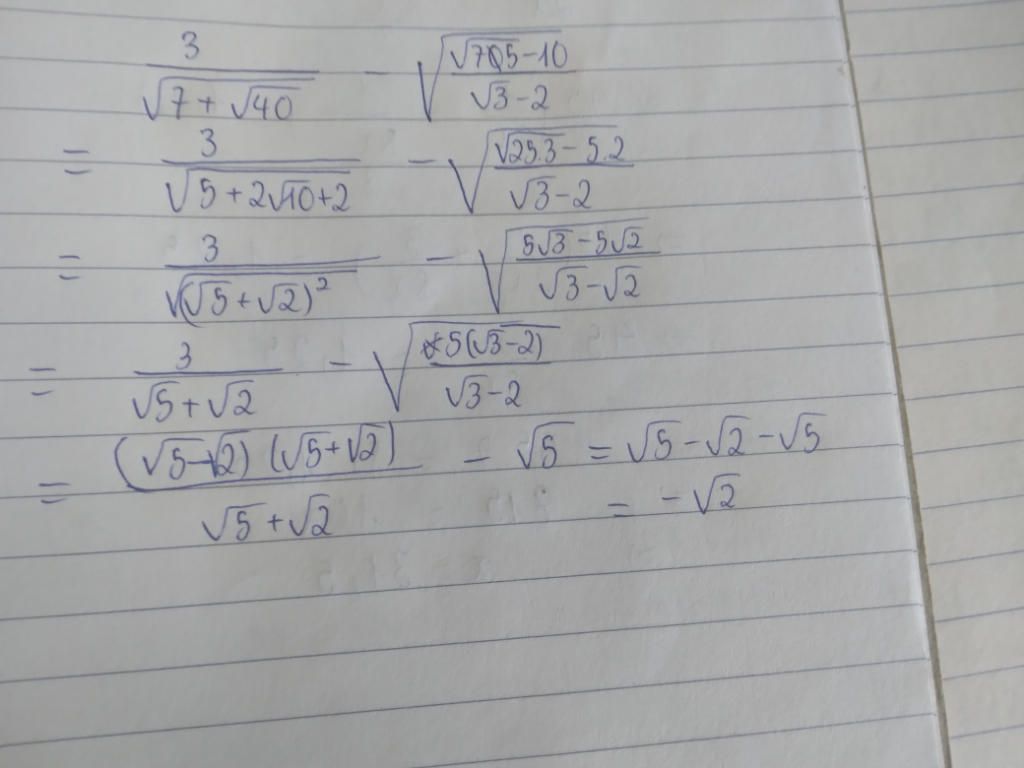 3/√(7 + √40) - √((√75 - 10)/(√3 - 2))
= 3/√(5 + 2√10 + 2) - √((√25.3 - 5.2)/(√3 - 2))
= 3/√(√5 + √2)² - √((5√3 - 5√2)/(√3 - √2))
= 3/(√5 + √2) - √(5(√3 - 2)/(√3 - 2))
= (√5 - √2)(√5 + √2)/(√5 + √2) - √5 = √5 - √2 - √5
= -√2